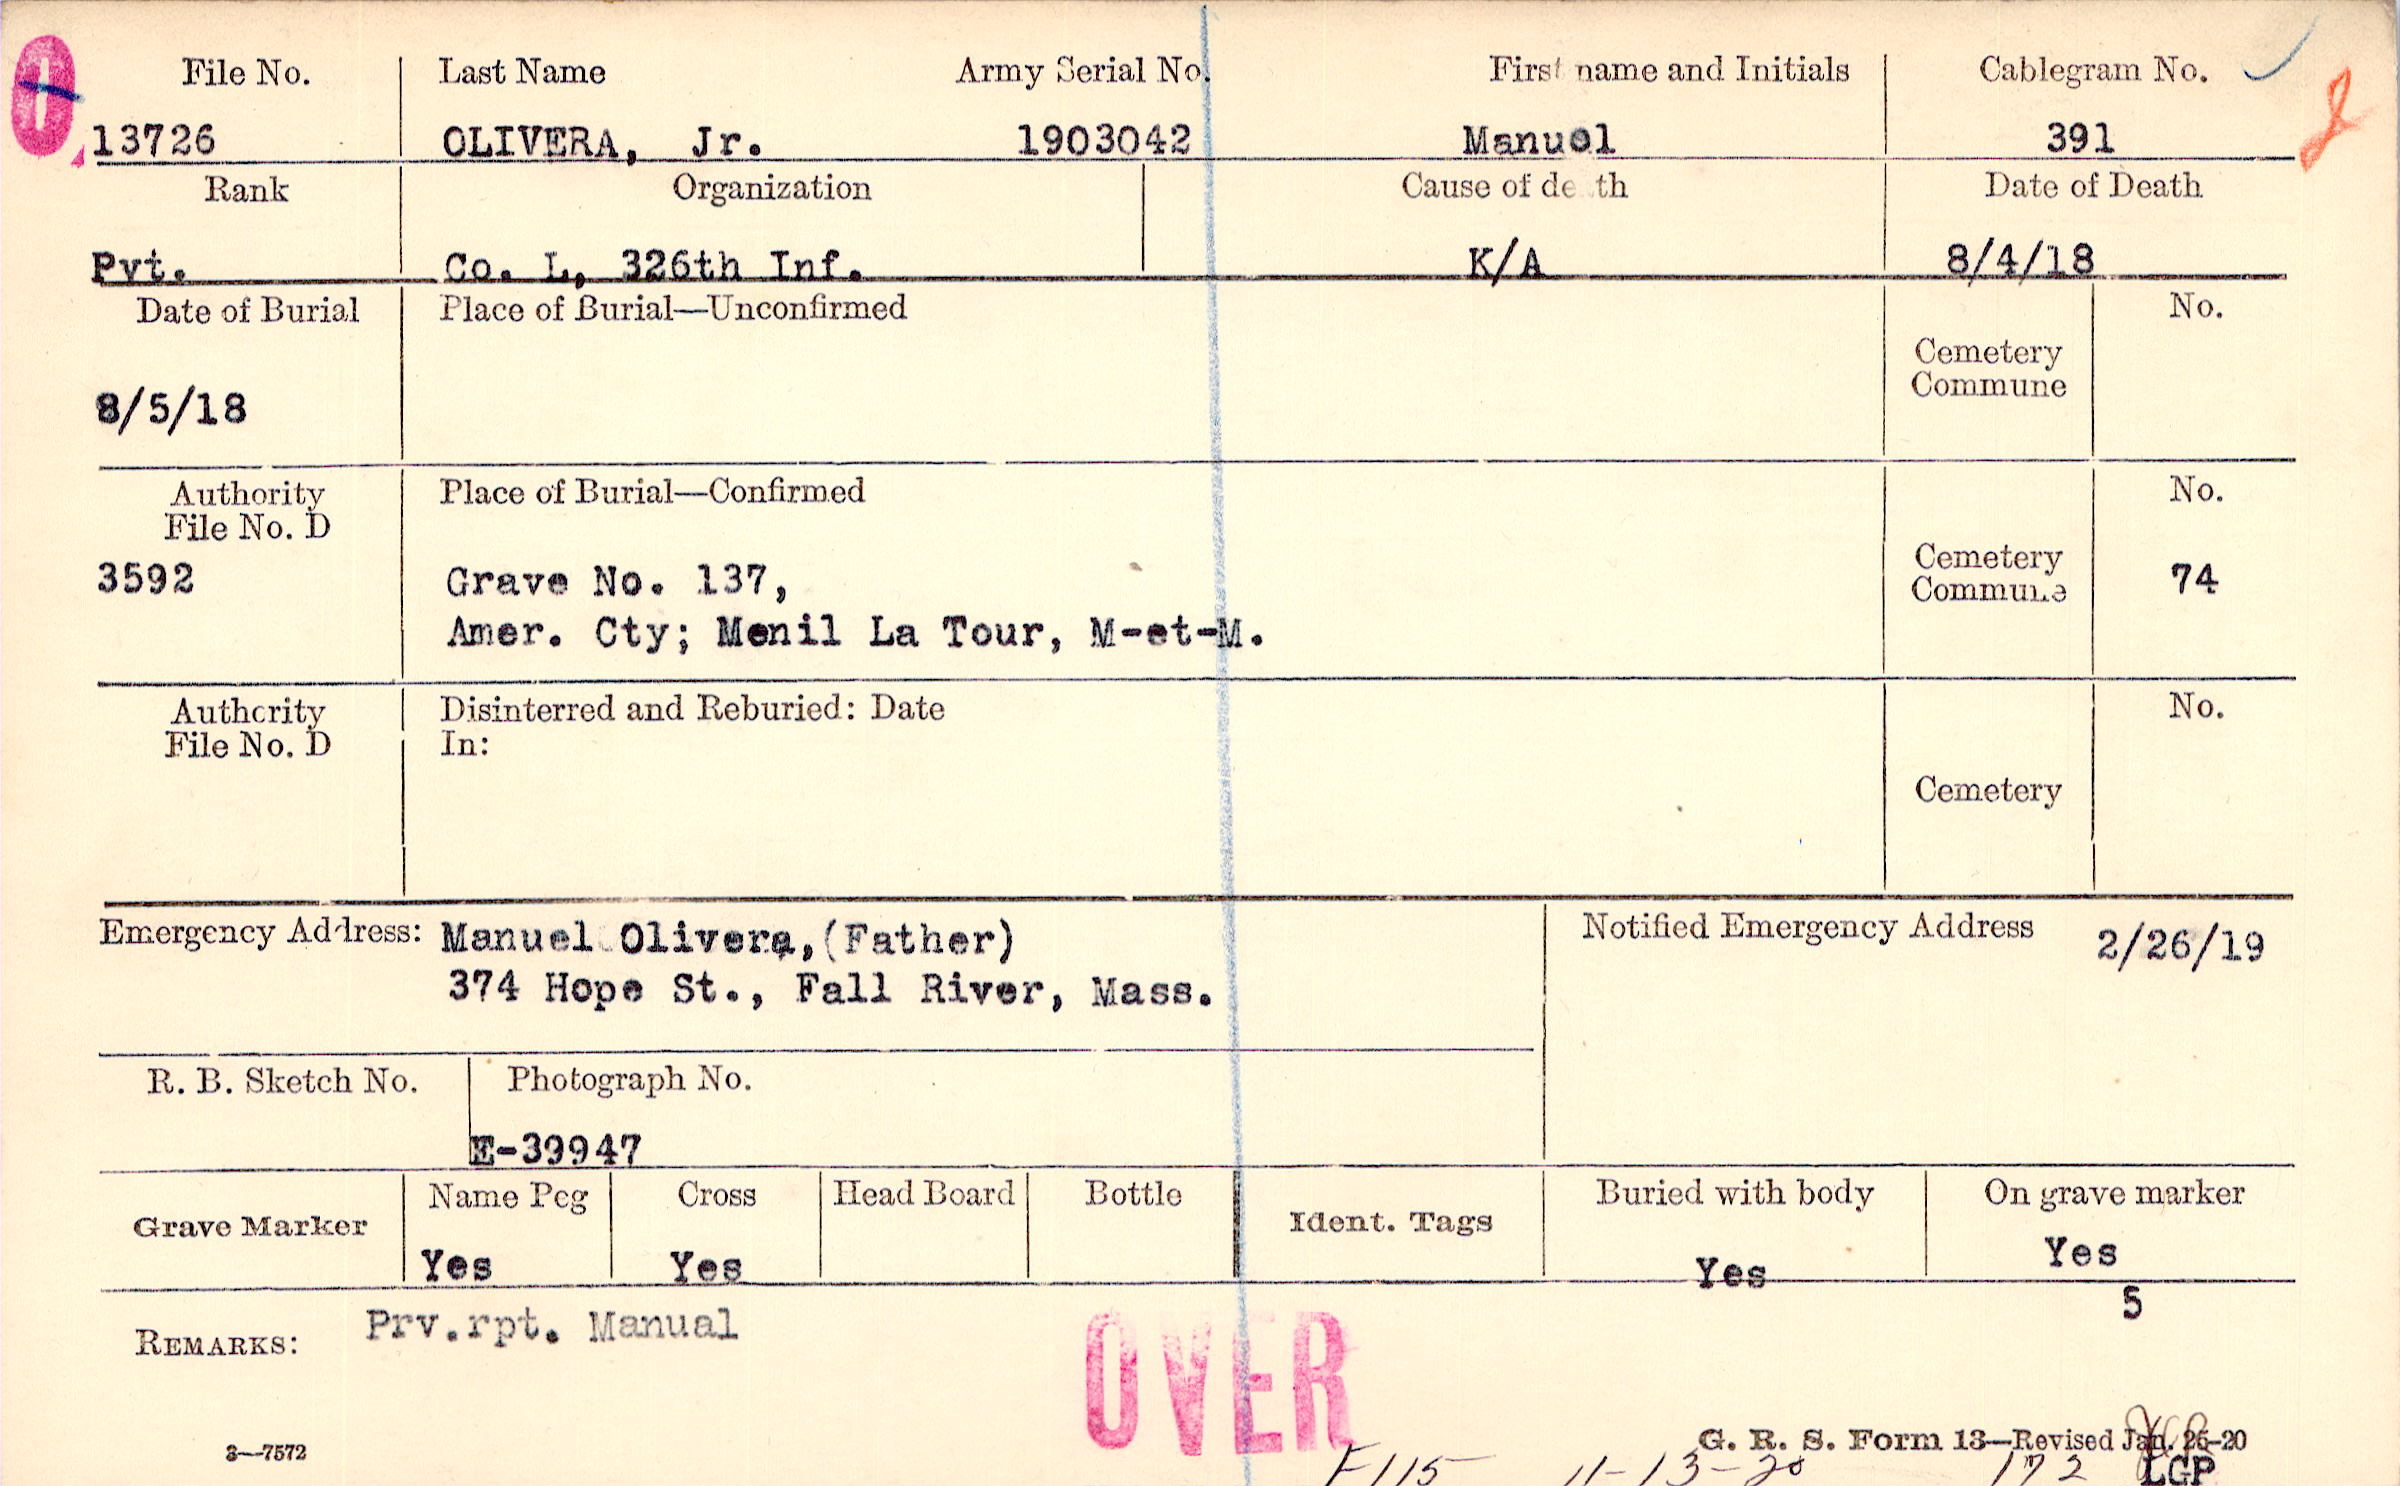 File No. Last Name Army Serial No. First name and Initials Cablegram No.
13726 OLIVERA, Jr. 1903042 Manuel 391
Rank Organization Cause of death Date of Death
Pvt. Co. L, 326th Inf. K/A 8/4/18
Date of Burial Place of Burial—Unconfirmed No.
Cemetery
Commune
8/5/18
Authority Place of Burial—Confirmed No.
File No. D
3592 Grave No. 137, Cemetery Commune 74
Amer. Cty; Menil La Tour, M-et-M.
Authority Disinterred and Reburied: Date No.
File No. D In:
Cemetery
Emergency Address: Manuel Olivera, (Father) Notified Emergency Address 2/26/19
374 Hope St., Fall River, Mass.
R. B. Sketch No. Photograph No.
E-39947
Grave Marker Name Peg Cross Head Board Bottle Ident. Tags Buried with body On grave marker
Yes Yes Yes Yes
5
REMARKS: Prv.rpt. Manual
OVER
3—7572 G. R. S. Form 13—Revised Jan. 26-20
F115 11-13-20 172 LGP